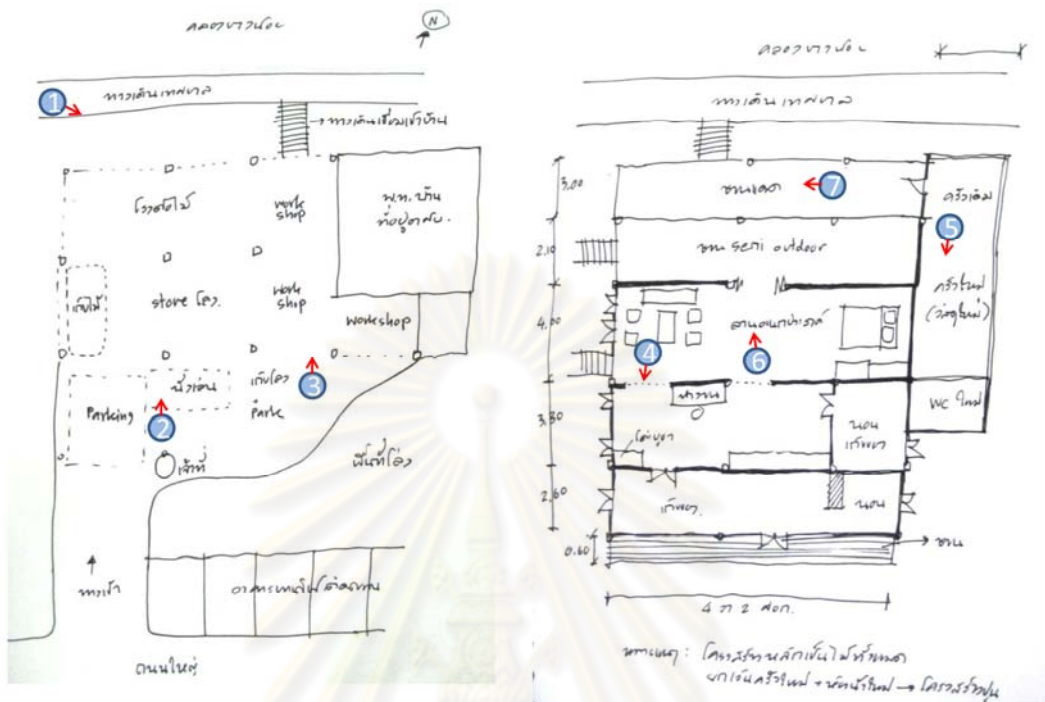 คลองบางน้อย
N
1
ทางเดินเทศบาล
ทางเดินเชื่อมเข้าบ้าน
work
shop
พ.ท. บ้าน
ที่อยู่อาศัย.
เก็บไม้
store โลง.
work
shop
workshop
3
Parking
นั่งเล่น
2
เก็บโลง
Park
เจ้าที่
พื้นที่โล่ง
ทางเข้า
ถนนใหญ่
คลองบางน้อย
ทางเดินเทศบาล
3.00
ชานแดด
7
ครัวเดิม
2.10
ชาน semi outdoor
5
ครัวใหม่
(วัสดุใหม่)
4.00
ลานอเนกประสงค์
4
6
3.80
WC ใหม่
นอน
2.60
นอน
0.60
ชาน
4 วา 2 ศอก.
หมายเหตุ : โครงสร้างหลักเป็นไม้ทั้งหมด
ยกเว้นครัวใหม่ + ห้องน้ำใหม่ → โครงสร้างปูน